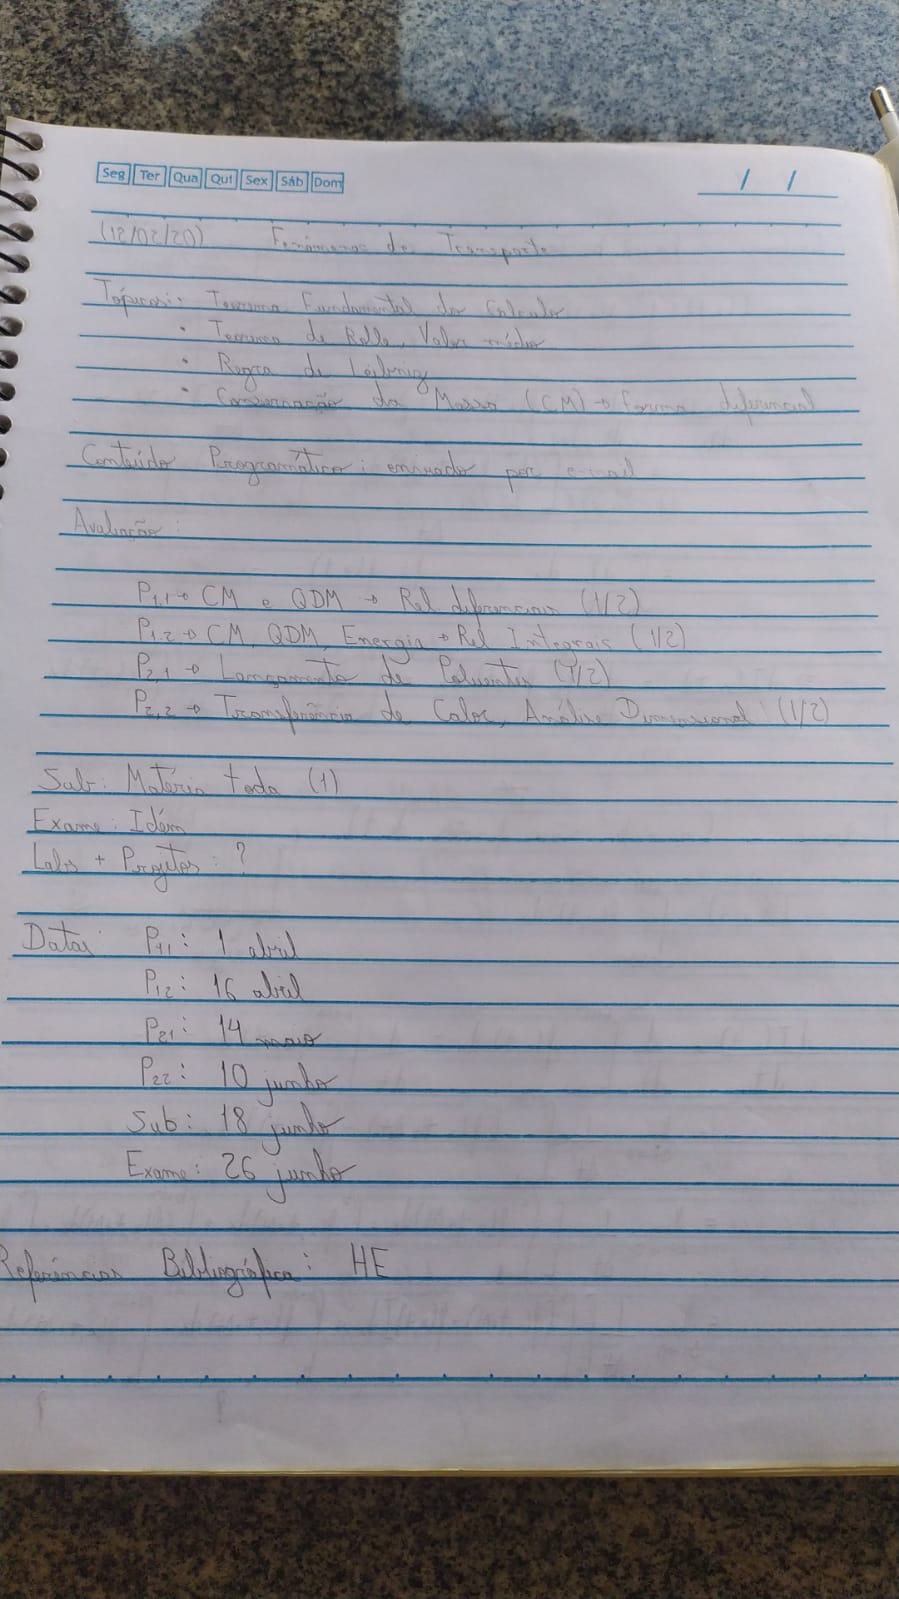 Seg Ter Qua Qui Sex Sáb Dom / /
(12/02/20) Fenômenos de Transporte
Tópicos: Teorema Fundamental do Cálculo
• Teorema de Rolle, Valor médio
• Regra de Leibniz
• Conservação da Massa (CM) → Forma diferencial
Conteúdo Programático: enviado por e-mail
Avaliação:
P1,1 → CM e QDM → Rel diferenciais (1/2)
P1,2 → CM, QDM, Energia → Rel Integrais (1/2)
P2,1 → Lançamento de Poluentes (1/2)
P2,2 → Transferência de Calor, Análise Dimensional (1/2)
Sub: Matéria toda (1)
Exame: Idém
Labs + Projetos: ?
Datas: P11: 1 abril
P12: 16 abril
P21: 14 maio
P22: 10 junho
Sub: 18 junho
Exame: 26 junho
Referências Bibliográfica: HE